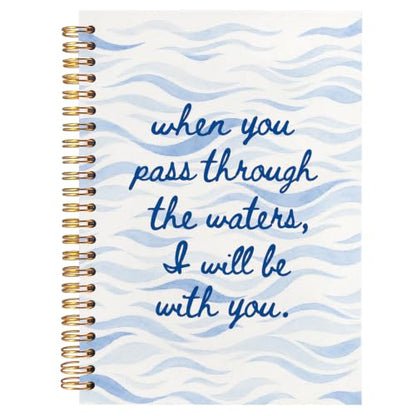 when you
pass through
the waters,
I will be
with you.